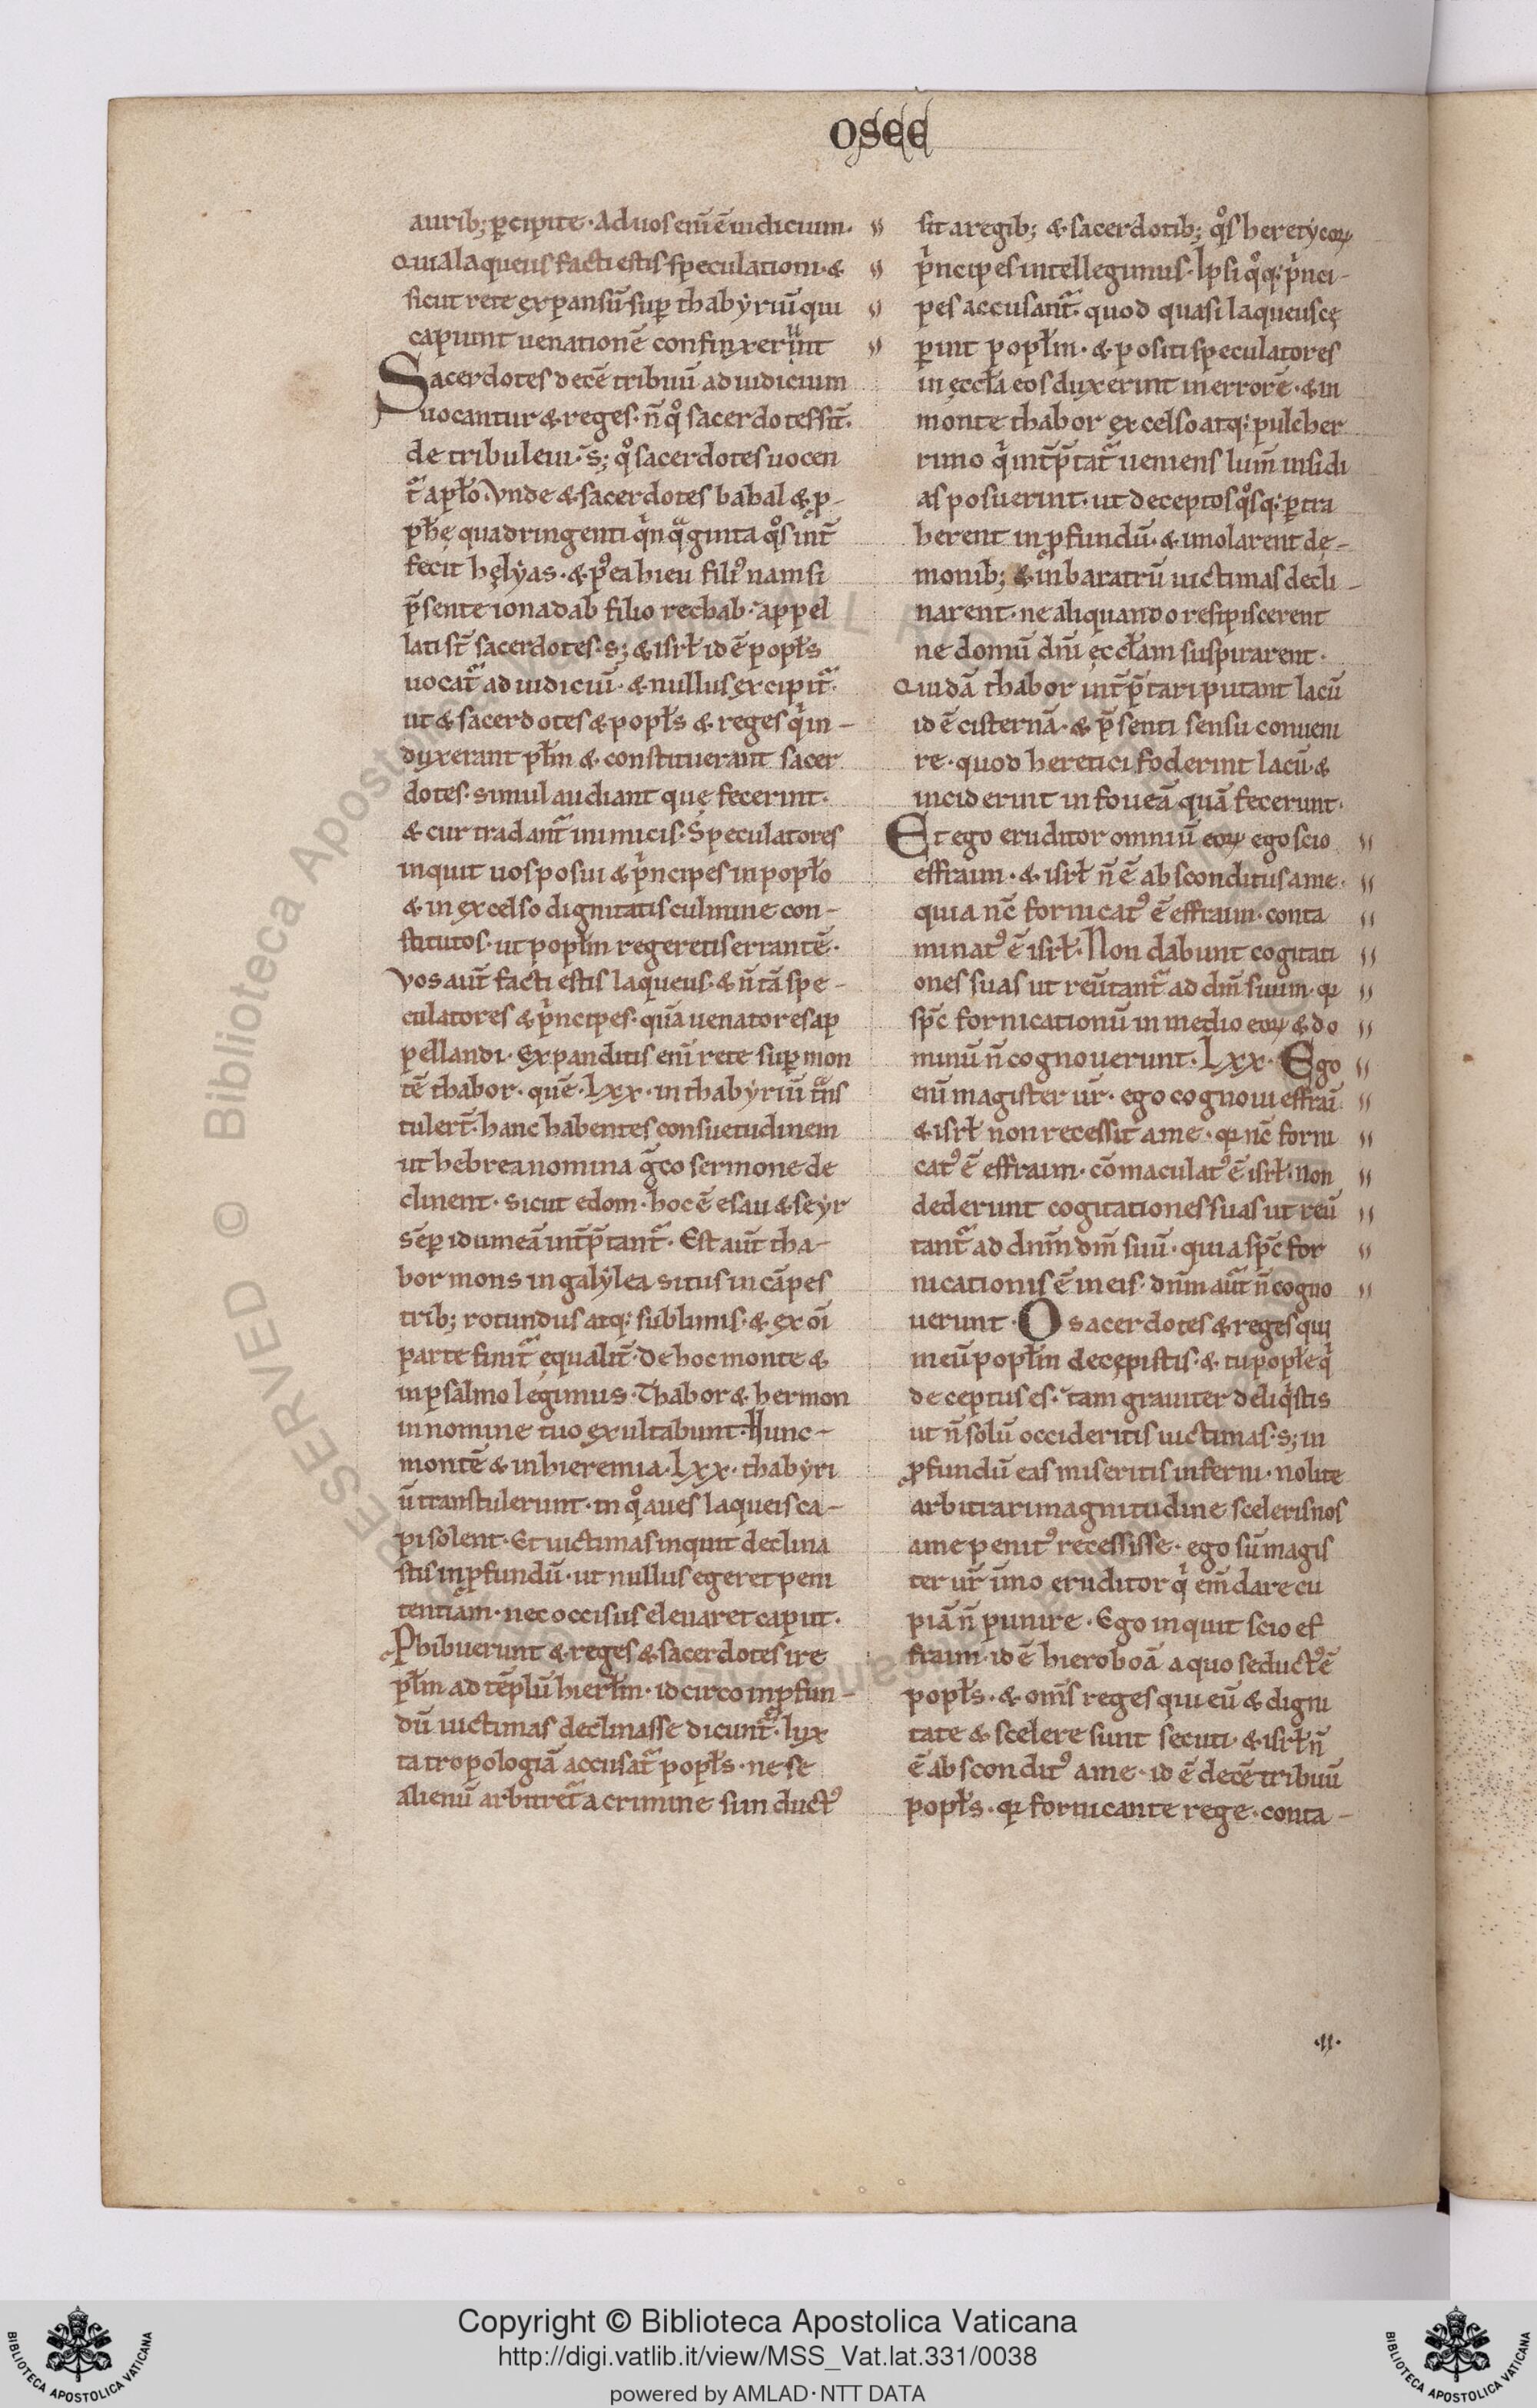 osee
aurib; ꝑcipite· Aduos eni̅ e̅ iudicium·
Quia laqueus facti estis speculationi· &
sicut rete expansu̅ suꝑ thabyriu̅ qui
capiunt uenatione̅ confinxerunt
Sacerdotes dece̅ tribuu̅ ad iudicium
uocantur & reges· n̅ qͦ sacerdotes sint̅·
de tribu leui· s; qͦ sacerdotes uocen
t᷑ a pp̅lo Vnde & sacerdotes babal & ꝓ-
phe̜ quadringenti qinqͣginta qͦs int̅
fecit he̜lyas· & p᷒ea hieu fili᷒ namsi
p̅sente ionadab filio rechab· appel
lati st̅ sacerdotes· s; & isrł id e̅ popłs
uocat᷑ ad iudiciu̅· & nullus excipit᷑·
ut & sacerdotes & popłs & reges qi in-
duxerant płm & constituerant sacer
dotes· simul audiant que̜ fecerint·
& cur tradant᷑ inimicis· Speculatores
inquit uos posui & pͥncipes in popło
& in excelso dignitatis culmine con-
stitutos· ut popłm regeretis errante̅·
Vos aut̅ facti estis laqueus· & n̅ ta̅ spe-
culatores & pͥncipes· qua̅ uenatores ap
pellandi· Expanditis eni̅ rete suꝑ mon
te̅ thabor· que̅· Lxx· in thabyriu̅ tͣns
tulert̅· hanc habentes consuetudinem
ut hebrea nomina g̅co sermone de
clinent· sicut edom· hoc e̅ esau & seyr
se̅ꝑ idumea̅ int̅p̅tant᷑· Est aut̅ tha-
bor mons in galylea situs in ca̅pes
trib; rotundus atq; sublimis· & ex oi̅
parte finit᷑ e̜qualit̅· De hoc monte &
in psalmo legimus· Thabor & hermon
in nomine tuo exultabunt· Hunc-
monte̅ & in hieremia· Lxx· thabyri
u̅ transtulerunt· in qͦ aues laqueis ca-
pi solent· Et uictimas inquit declina
stis in ꝓfundu̅· ut nullus egeret peni
tentiam· nec occisus eleuaret caput·
Ꝓhibuerunt & reges & sacerdotes ire
płm ad te̅plu̅ hierłm· idcirco in ꝓfun-
du̅ uictimas declinasse dicunt᷑· Iux
ta tropologia̅ accusat᷑ popłs· ne se
alienu̅ arbitret᷑ a crimine si induct᷒
sit a regib; & sacerdotib; qͦs heretycoꝝ
pͥncipes intellegimus· Ipsi qͦq; pͥnci-
pes accusant᷑· quod quasi laqueus ce̜
ꝑint popłm· & positi speculatores
in e̜ccła eos duxerint in errore̅· & in
monte thabor excelso atq; pulcher
rimo qi int̅p̅tat᷑ ueniens lum̅ insidi
as posuerint· ut deceptos qͦsq; ꝑtra
herent in ꝓfundu̅· & imolarent de̜-
monib; & in baratru̅ uictimas decli-
narent· ne aliquando resipiscerent
ne domu̅ dni̅ e̜ccłam suspirarent·
Quida̅ thabor int̅p̅tari putant lacu̅
id e̅ cisterna̅· & p̅senti sensu conueni
re· quod heretici foderint lacu̅· &
inciderint in fouea̅ qua̅ fecerunt·
Et ego eruditor omniu̅ eoꝝ ego scio
effraim· & isrł n̅ e̅ absconditus a me·
quia nc̅ fornicat᷒ e̅ effraim· conta
minat᷒ e̅ isrł· Non dabunt cogitati
ones suas ut reu̅tant᷑ ad dm̅ suum· qꝛ
spc̅ fornicationu̅ in medio eoꝝ & do
minu̅ n̅ cognouerunt· Lxx· Ego
eni̅ magister ur̅· ego cognoui effrai̅·
& isrł non recessit a me· qꝛ nc̅ forni
cat᷒ e̅ effraim· co̅maculat᷒ e̅ isrł· non
dederunt cogitationes suas ut reu̅
tant᷑ ad dnm̅ dm̅ suu̅· quia spc̅ for
nicationis e̅ in eis· dnm̅ aut̅ n̅ cogno
uerunt· O sacerdotes & reges qui
meu̅ popłm dece̜pistis· & tu popłe qi
deceptus es· tam grauiter deliqistis
ut n̅ solu̅ occideritis uictimas· s; in
ꝓfundu̅ eas miseritis inferni· nolite
arbitrari magnitudine sceleris nos
a me penit᷒ recessisse· ego su̅ magis
ter ur̅ i̅mo eruditor qi em̅dare cu
pia̅ n̅ punire· Ego inquit scio ef
fraim· id e̅ hieroboa̅ a quo seduct᷒ e̅
popłs· & om̅s reges qui eu̅ & digni
tate & scelere sunt secuti· & isrł n̅
e̅ abscondit᷒ a me· id e̅ dece̅ tribuu̅
popłs· qꝛ fornicante rege· conta-
·II·
Copyright © Biblioteca Apostolica Vaticana
http://digi.vatlib.it/view/MSS_Vat.lat.331/0038
powered by AMLAD·NTT DATA
BIBLIOTECA APOSTOLICA VATICANA
BIBLIOTECA APOSTOLICA VATICANA